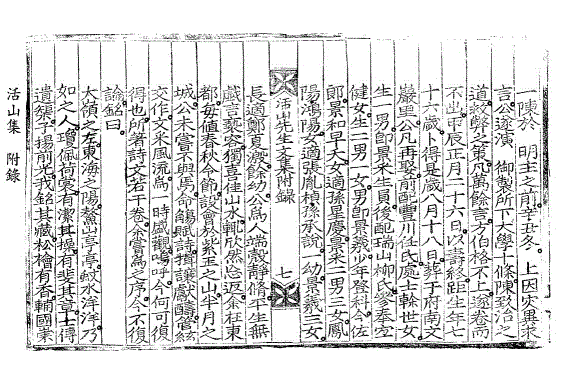 一陳於 明主之前辛丑冬 上因求
言公遂演 御製所下大學十條陳致治之
道救弊之策凡萬餘言方伯格不上遂卷而
不出甲辰正月二十六日以壽終距生年七
十六歲卜得是歲八月十八日葬于府南文
巖里公凡再娶前配豊川任氏處士幹世女
生一男卽景采生員後配瑞山柳氏參奉宜
健女生二男一女男卽景羲少年登科今佐
郞景和早夭女適孫星慶景采二男三女鳳
陽鴻陽女適張胤楨孫承說一幼景羲三女
活山先生文集附錄 七
長適鄭夏濬餘幼公爲人端慤靜脩平生無
戱言褻容獨喜佳山水輒欣然忘返余在東
都每値春秋令節設會於紫玉之山半月之
城公未嘗不與焉命觴賦詩揖讓獻酬管絃
交作文采風流爲一時盛觀嗚呼今何可復
得也所著詩文若干卷余嘗爲之序今不復
論銘曰
大嶺之左東海之陽鰲山亭亭蚊水洋洋乃
如之人瓊佩荷裳有潔其操有斐其章士得
遺珠子揚前光我銘其藏松檜有香輔國崇
活山集 附錄